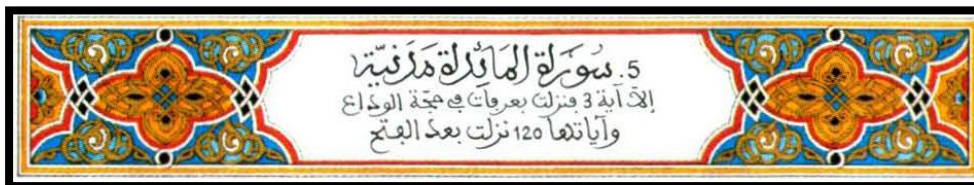 5. سورة المائدة مدنية
إلا آية 3 فنزلت بعرفات في حجة الوداع
وآياتها 120 نزلت بعد الفتح